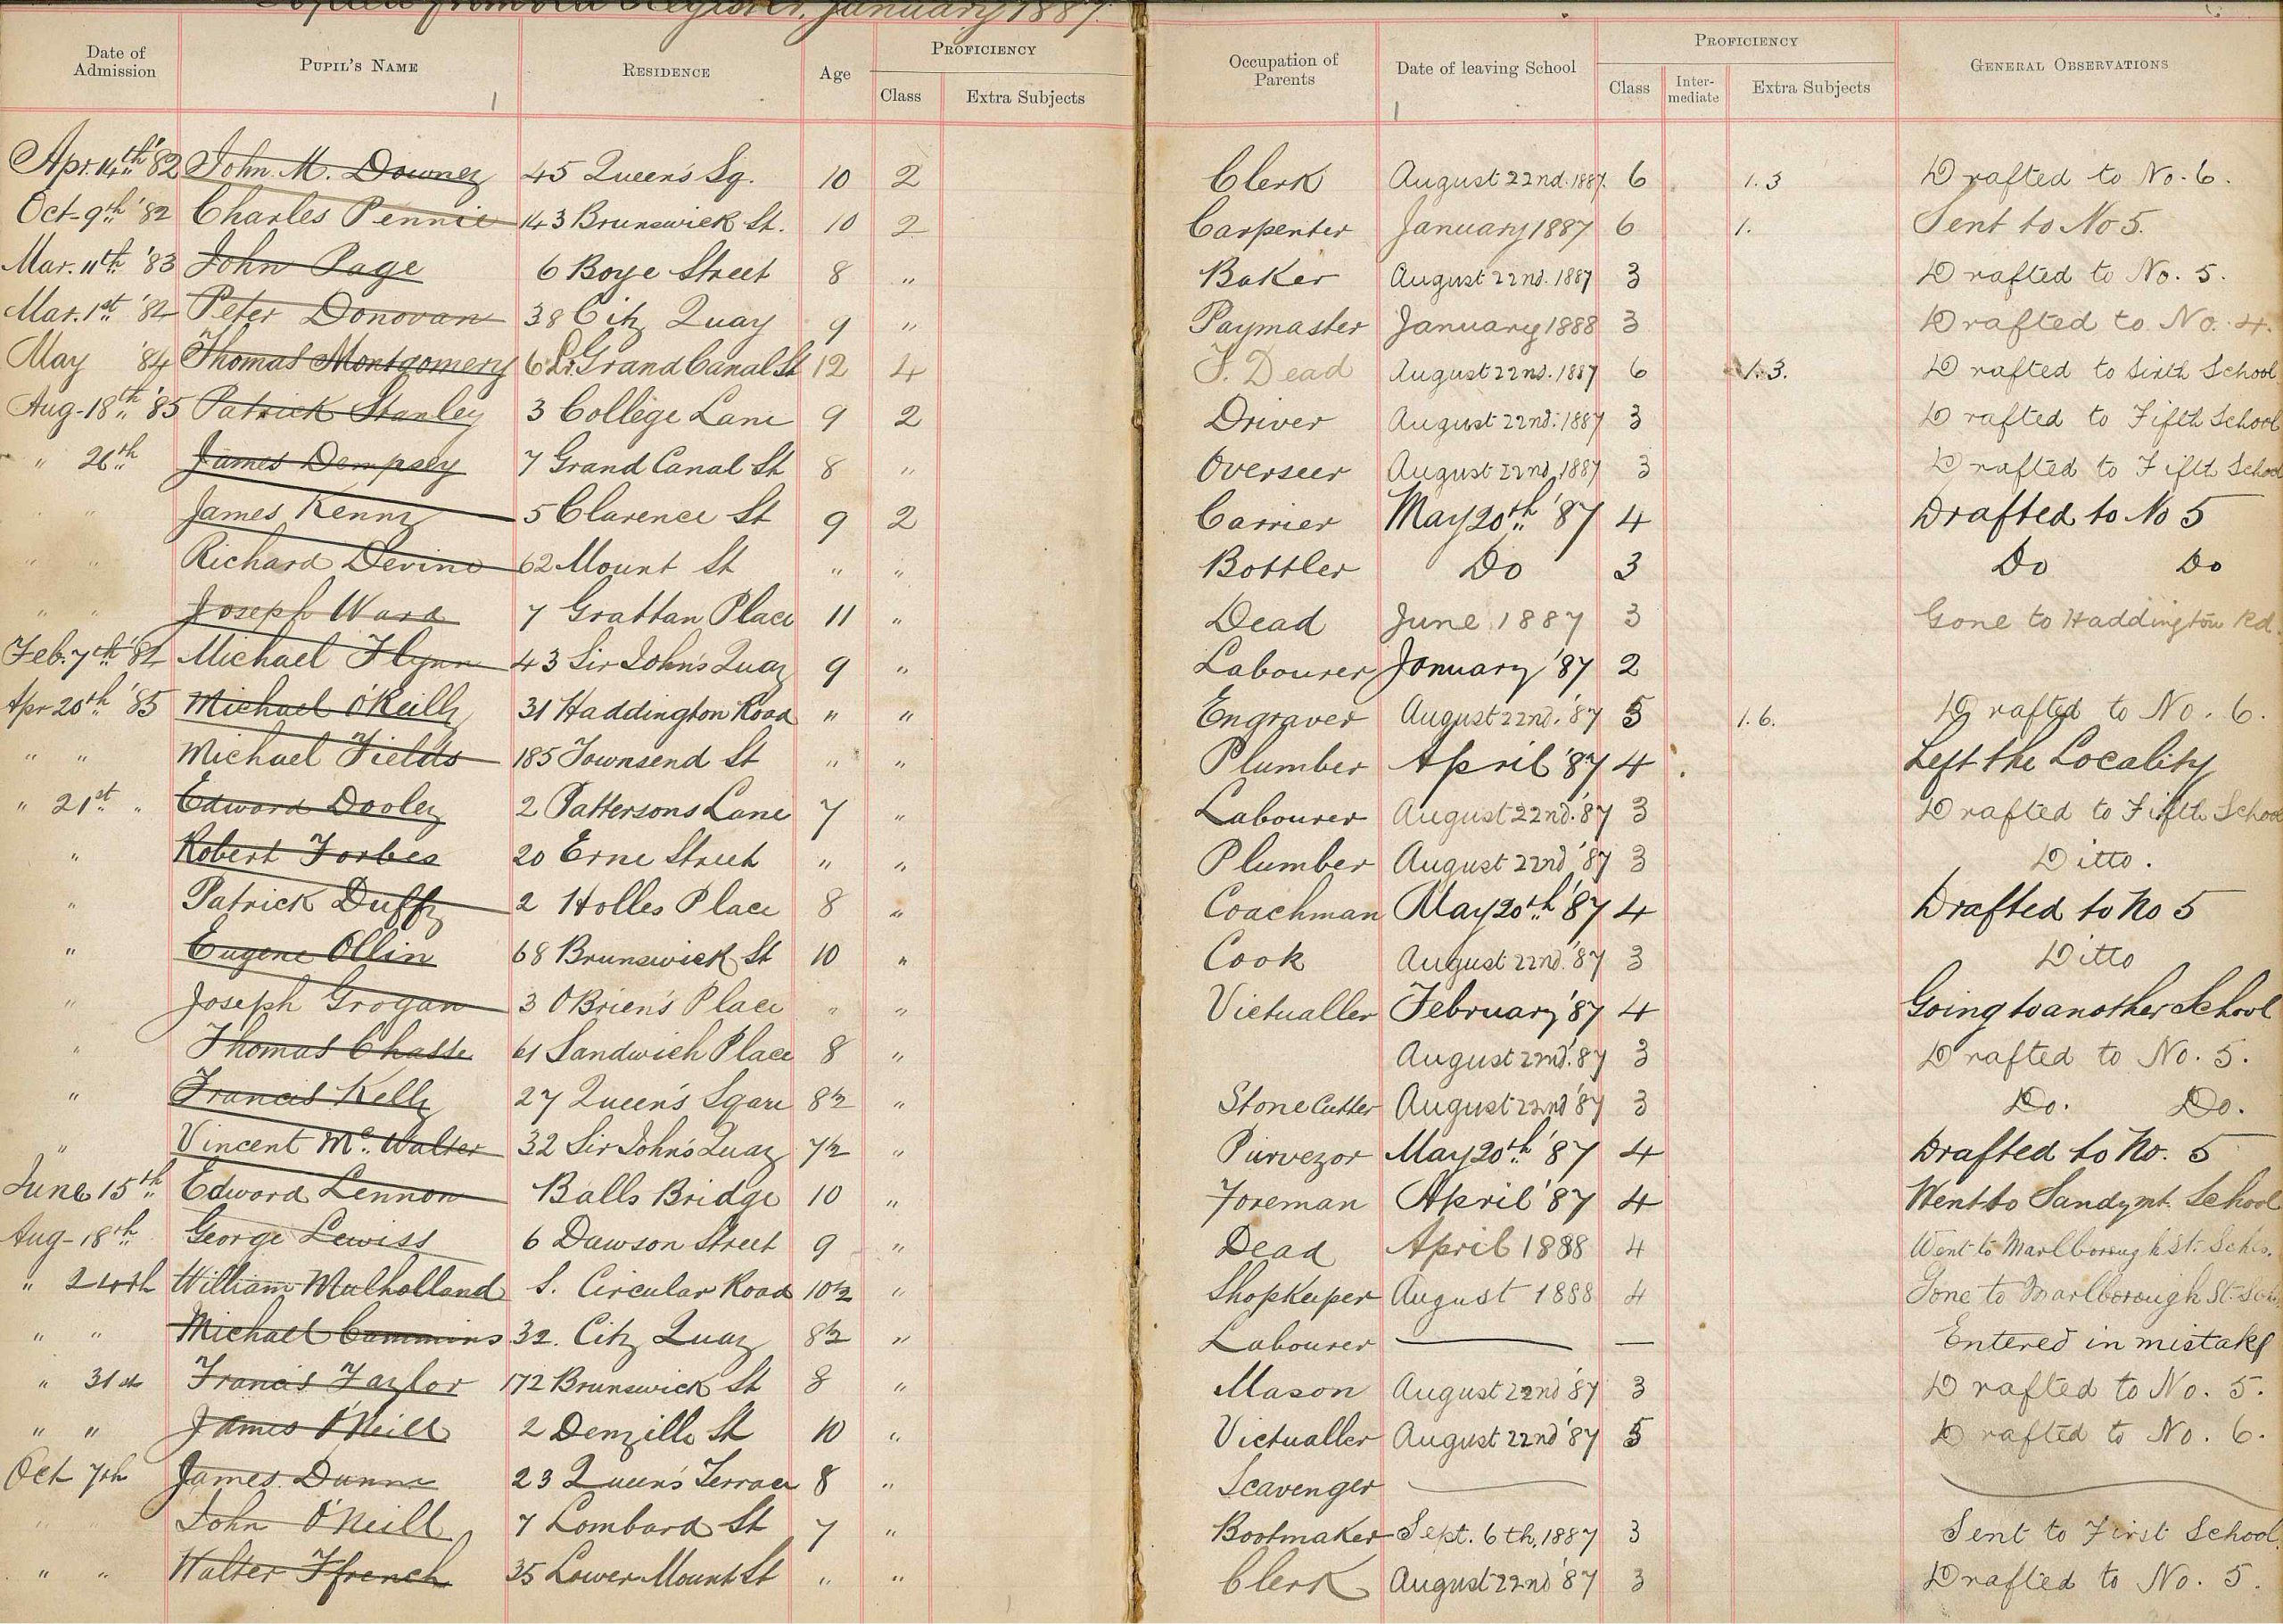 Copied from Old Register, January 1887.
Date of Admission PUPIL'S NAME RESIDENCE Age PROFICIENCY Class Extra Subjects Occupation of Parents Date of leaving School PROFICIENCY Class Inter-mediate Extra Subjects GENERAL OBSERVATIONS
Apr. 14th '82 John M. Downey 45 Queen's Sq. 10 2 Clerk August 22nd. 1887. 6 1. 3 Drafted to No. 6.
Oct-9th '82 Charles Pennie 143 Brunswick St. 10 2 Carpenter January 1887 6 1. Sent to No 5.
Mar. 11th '83 John Page 6 Boye Street 8 " Baker August 22nd. 1887 3 Drafted to No. 5.
Mar. 1st '82 Peter Donovan 38 City Quay 9 " Paymaster January 1888 3 Drafted to No. 4.
May '84 Thomas Montgomery 6 Lr. Grand Canal St 12 4 F. Dead August 22nd. 1887 6 1. 3. Drafted to Sixth School
Aug-18th '85 Patrick Stanley 3 College Lane 9 2 Driver August 22nd. 1887 3 Drafted to Fifth School
" 26th James Dempsey 7 Grand Canal St 8 " Overseer August 22nd, 1887 3 Drafted to Fifth School
" James Kenny 5 Clarence St 9 2 Carrier May 20th '87 4 Drafted to No 5
" " Richard Devine 62 Mount St " " Bottler Do 3 Do Do
" " Joseph Ward 7 Grattan Place 11 " Dead June 1887 3 Gone to Haddington Rd.
Feb. 7th '82 Michael Flynn 43 Sir John's Quay 9 " Labourer January '87 2
Apr 20th '85 Michael O'Reilly 31 Haddington Road " " Engraver August 22nd. '87 5 1. 6. Drafted to No. 6.
" " Michael Fields 185 Townsend St " " Plumber April '87 4 Left the Locality
" 21st " Edward Dooley 2 Pattersons Lane 7 " Labourer August 22nd. '87 3 Drafted to Fifth School
" Robert Forbes 20 Erne Street " " Plumber August 22nd '87 3 Ditto.
" Patrick Duffy 2 Holles Place 8 " Coachman May 20th '87 4 Drafted to No 5
" Eugene Ollin 68 Brunswick St 10 " Cook August 22nd. '87 3 Ditto
" Joseph Grogan 3 O'Brien's Place " " Victualler February '87 4 Going to another School
" Thomas Chasse 61 Sandwich Place 8 " August 22nd. '87 3 Drafted to No. 5.
" Francis Kelly 27 Queen's Sqare 8½ " Stone Cutter August 22nd '87 3 Do. Do.
" Vincent Mc. Walter 32 Sir John's Quay 7½ " Purveyor May 20th '87 4 Drafted to No. 5
June 15th Edward Lennon Balls Bridge 10 " Foreman April '87 4 Went to Sandymt. School
Aug-18th George Lewiss 6 Dawson Street 9 " Dead April 1888 4 Went to Marlborough St. Schs.
" 24th William Mulholland S. Circular Road 10½ " Shopkeeper August 1888 4 Gone to Marlborough St.
" " Michael Cummins 32. City Quay 8½ " Labourer — — Entered in mistake
" 31st Francis Taylor 172 Brunswick St 8 " Mason August 22nd '87 3 Drafted to No. 5.
" " James O'Neill 2 Denzille St 10 " Victualler August 22nd '87 5 Drafted to No. 6.
Oct 7th James Dunne 23 Queen's Terrace 8 " Scavenger —
John O'Neill 7 Lombard St 7 " Bootmaker Sept. 6th, 1887 3 Sent to First School.
" " Walter Ffrench 35 Lower Mount St " " Clerk August 22nd '87 3 Drafted to No. 5.